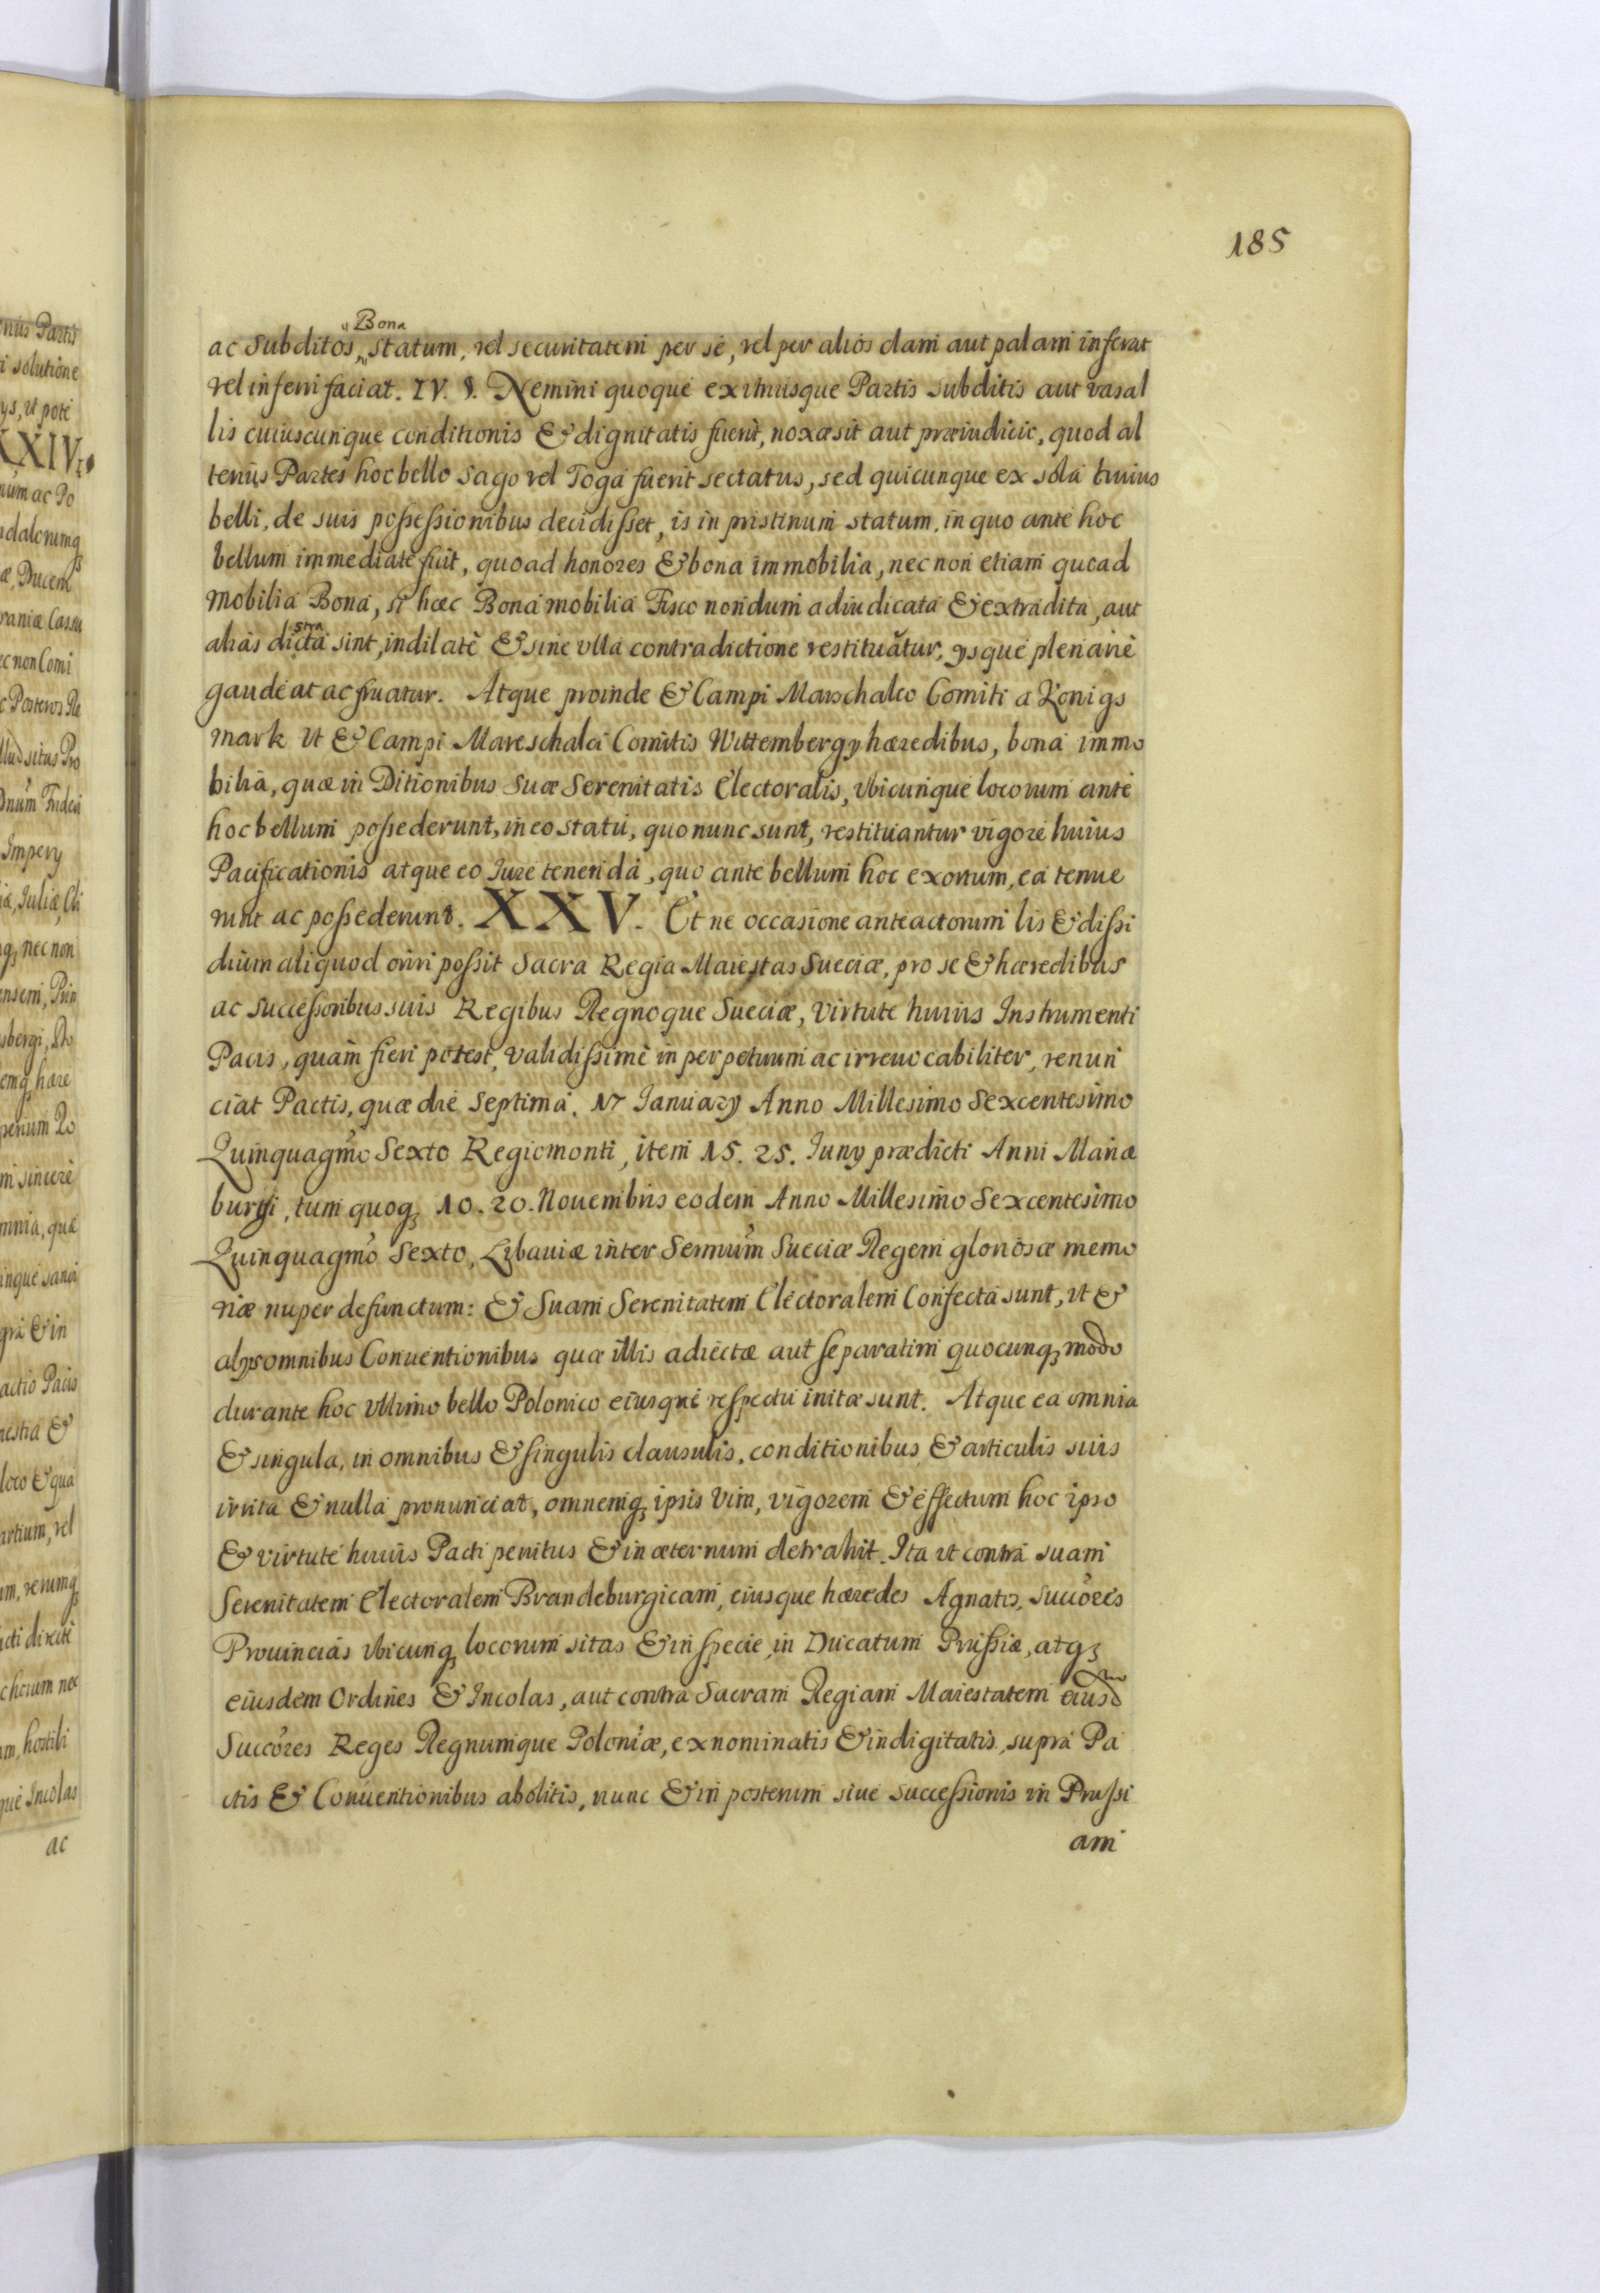 185
Bona
ac subditos, statum, vel securitatem per se, vel per alios clam aut palam inferat
vel inferri faciat. IV. §. Nemini quoque ex utriusque Partis subditis aut vasal
lis cuiuscunque conditionis & dignitatis fuerit, noxæ sit aut præiudicio, quod al
terius Partes hoc bello sago vel Toga fuerit sectatus, sed quicunque ex sola huius
belli, de suis possessionibus decidisset, is in pristinum statum, in quo ante hoc
bellum immediate fuit, quoad honores & bona immobilia, nec non etiam quoad
mobilia Bona, si hæc Bona mobilia Fisco nondum adiudicata & extradita, aut
stra
alias dicta sint, indilatè & sine vlla contradictione restituatur, ysque plenariè
gaudeat ac fruatur. Atque proinde & Campi Marschalco Comiti a Konigs
mark Vt & Campi Mareschalci Comitis Wittembergy hæredibus, bona immo
bilia, quæ in Ditionibus Suæ Serenitatis Electoralis, vbicunque locorum ante
hoc bellum possederunt, in eo statu, quo nunc sunt, restituantur vigore huius
Pacificationis atque eo Jure tenenda, quo ante bellum hoc exortum, ea tenue
runt ac possederunt. XXV. Et ne occasione anteactorum lis & dissi
dium aliquod oriri possit Sacra Regia Maiestas Sueciæ, pro se & hæredibus
ac successoribus suis Regibus Regnoque Sueciæ, Virtute huius Instrumenti
Pacis, quam fieri potest, validissimè in perpetuum ac irreuocabiliter, renun
ciat Pactis, quæ die Septima. 17 January Anno Millesimo Sexcentesimo
Quinquagmo Sexto Regiomonti, item 15. 25. Juny prædicti Anni Mariæ
burgi, tum quoq 10. 20. Nouembris eodem Anno Millesimo Sexcentesimo
Quinquagmo Sexto, Libauiæ inter Sermum Sueciæ Regem gloriosæ memo
riæ nuper defunctum: & Suam Serenitatem Electoralem Confecta sunt, vt &
alysomnibus Conuentionibus quæ illis adiectæ aut separatim quocunq modo
durante hoc vltimo bello Polonico eiusque respectu initæ sunt. Atque ea omnia
& singula, in omnibus & singulis clausulis, conditionibus & articulis suis
irrita & nulla pronunciat, omnemq ipsis Vim, vigorem & effectum hoc ipso
& virtute huius Pacti penitus & in æternum detrahit. Ita vt contra suam
Serenitatem Electoralem Brandeburgicam, eiusque hæredes Agnatos, Succores
Prouincias vbicunq locorum sitas & in specie, in Ducatum Prussiæ, atq
eiusdem Ordines & Incolas, aut contra Sacram Regiam Maiestatem eiusd
Succores Reges Regnumque Poloniæ, ex nominatis & indigitatis, supra Pa
ctis & Conuentionibus abolitis, nunc & in posterum siue successionis in Prussi
am